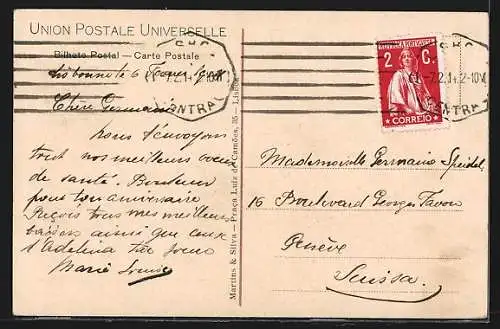 UNION POSTALE UNIVERSELLE
Bilhete Postal — Carte Postale
Lisbonne le 6
Chère Germaine
nous t'envoyons
tout nos meilleurs voeux
de santé. Bonheur
pour ton aniversaire
Reçois tous mes meilleurs
baisers ainsi que ceux
d'Adelina
Marie Louise
Martins & Silva — Praça Luiz de Camões, 35 — Lisboa
2 C.
CORREIO
CENTRAL
7.2.14 2-10
Mademoiselle Germaine Speidel
16 Boulevard Georges Favon
Genève
Suissa.